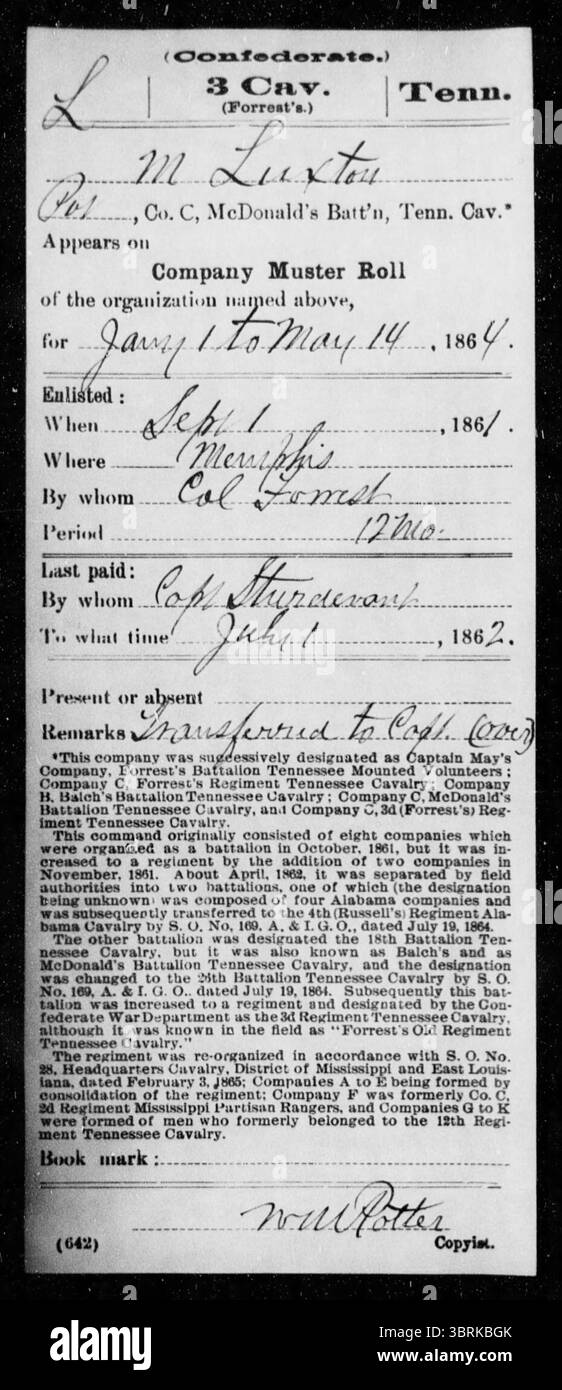 (Confederate.)
L 3 Cav. Tenn.
(Forrest's.)
M Luxton
Pvt, Co. C, McDonald's Batt'n, Tenn. Cav.*
Appears on
Company Muster Roll
of the organization named above,
for Jany 1 to May 14, 1864.
Enlisted:
When Sept 1, 1861.
Where Memphis
By whom Col Forrest
Period 12 mo.
Last paid:
By whom Capt Sturdevant
To what time July 1, 1862.
Present or absent
Remarks Transferred to Capt. (over)
*This company was successively designated as Captain May's
Company, Forrest's Battalion Tennessee Mounted Volunteers;
Company C, Forrest's Regiment Tennessee Cavalry; Company
B, Balch's Battalion Tennessee Cavalry; Company C, McDonald's
Battalion Tennessee Cavalry, and Company C, 3d (Forrest's) Reg-
iment Tennessee Cavalry.
This command originally consisted of eight companies which
were organized as a battalion in October, 1861, but it was in-
creased to a regiment by the addition of two companies in
November, 1861. About April, 1862, it was separated by field
authorities into two battalions, one of which (the designation
being unknown) was composed of four Alabama companies and
was subsequently transferred to the 4th (Russell's) Regiment Ala-
bama Cavalry by S. O. No, 169, A. & I. G. O., dated July 19, 1864.
The other battalion was designated the 18th Battalion Ten-
nessee Cavalry, but it was also known as Balch's and as
McDonald's Battalion Tennessee Cavalry, and the designation
was changed to the 26th Battalion Tennessee Cavalry by S. O.
No. 169, A. & I. G. O., dated July 19, 1864. Subsequently this bat-
talion was increased to a regiment and designated by the Con-
federate War Department as the 3d Regiment Tennessee Cavalry,
although it was known in the field as "Forrest's Old Regiment
Tennessee Cavalry."
The regiment was re-organized in accordance with S. O. No.
28, Headquarters Cavalry, District of Mississippi and East Louis-
iana, dated February 3, 1865; Companies A to E being formed by
consolidation of the regiment; Company F was formerly Co. C,
2d Regiment Mississippi Partisan Rangers, and Companies G to K
were formed of men who formerly belonged to the 12th Regi-
ment Tennessee Cavalry.
Book mark:
Wm Potter
(642) Copyist.
alamy
Image ID: 3BRKBGK
www.alamy.com